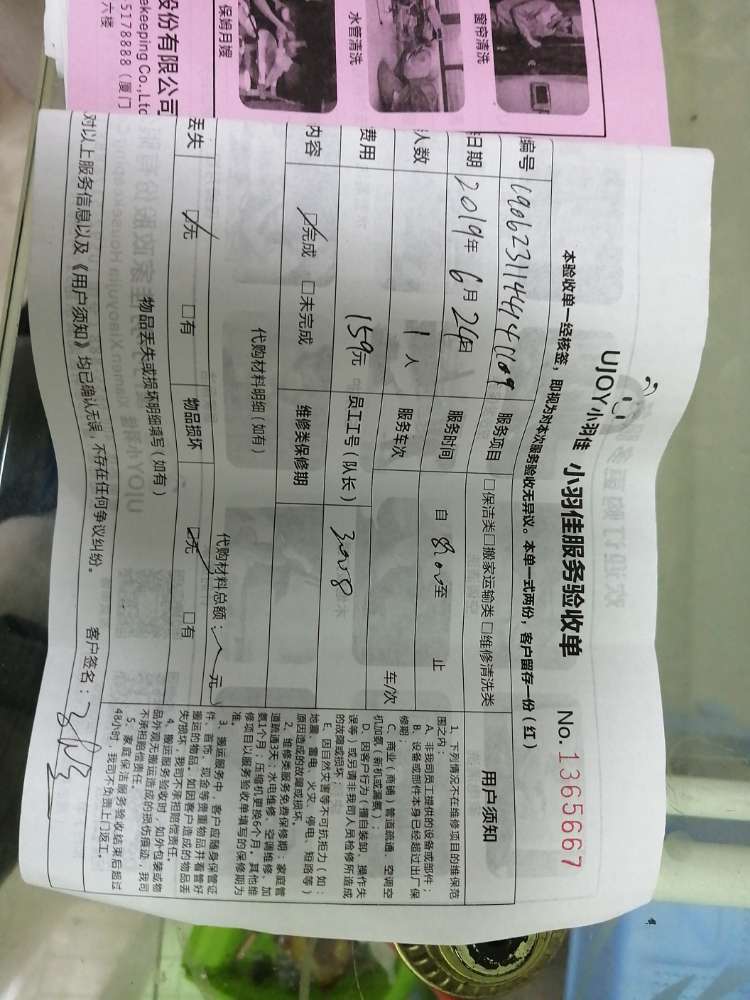 窗帘清洗
水管清洗
保姆月嫂
股份有限公司
ekeeping Co.,Ltd
5178888（厦门
六楼
UJOY小羽佳 小羽佳服务验收单 No. 1365667
本验收单一经核签，即视为对本次服务验收无异议。本单一式两份，客户留存一份（红）
编号 服务项目 □保洁类□搬家运输类□维修清洗类
日期 2019年6月24日 服务时间 自 至 止
人数 1人 服务车次 车/次
费用 159元 员工工号（队长）
内容 ☑完成 □未完成 维修类保修期
代购材料明细（如有） 代购材料总额： 元
丢失 ☑无 □有 物品损坏 ☑无 □有
物品丢失或损坏明细填写（如有）
对以上服务信息以及《用户须知》均已确认无误，不存在任何争议纠纷。 客户签名：
用户须知
1、下列情况不在维修项目的维保范
围之内：
A、非我司员工提供的设备或部件；
B、设备或部件本身已经超过出厂保
修期；
C、商业（商铺）管道疏通、空调空
机加雾（新机或漏氨）；
D、因客户行为（擅自装卸、操作失
误等）或另请非我司人员检修所造成
的故障或损坏；
E、因自然灾害等不可抗拒力（如：
地震、雷电、火灾、停电、短路等）
原因造成的故障或损坏。
2、维修类服务免费保修期：家庭管
道疏通3天；水电维修、空调维修、加
氨1个月；压缩机更换6个月，其他维
修项目以服务验收单填写的保修期为
准。
3、搬运服务中，客户应随身保管证
件、首饰、现金等贵重物品并看管好
搬运的物品。如因客户造成的物品丢
失/损坏，我司不承担赔偿责任。
4、搬运服务验收时，如外包装或物
品外观无搬运造成的损伤痕迹，我司
不承担赔偿责任。
5、家庭保洁服务验收结束后超过
48小时，我司不负责上门返工。